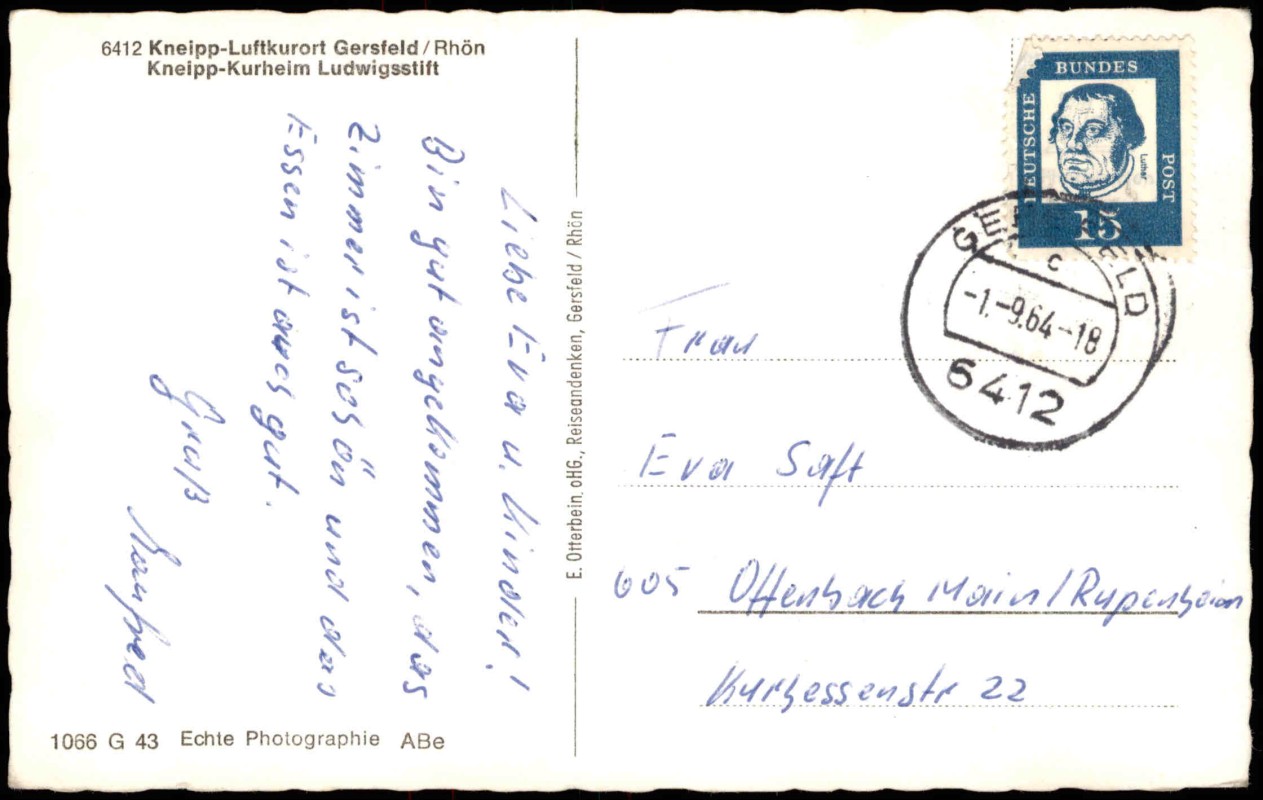 6412 Kneipp-Luftkurort Gersfeld/Rhön
Kneipp-Kurheim Ludwigsstift
Liebe Eva u. Kinder!
Bin gut angekommen, das
Zimmer ist schön und das
Essen ist auch gut.
Gruß
Manfred
1066 G 43 Echte Photographie ABe
E. Otterbein, oHG., Reiseandenken, Gersfeld / Rhön
DEUTSCHE
BUNDES
POST
Luther
15
GERSFELD
c
-1.-9.64-18
6412
Frau
Eva Saft
605 Offenbach Main/Rupenheim
Kurhessenstr 22